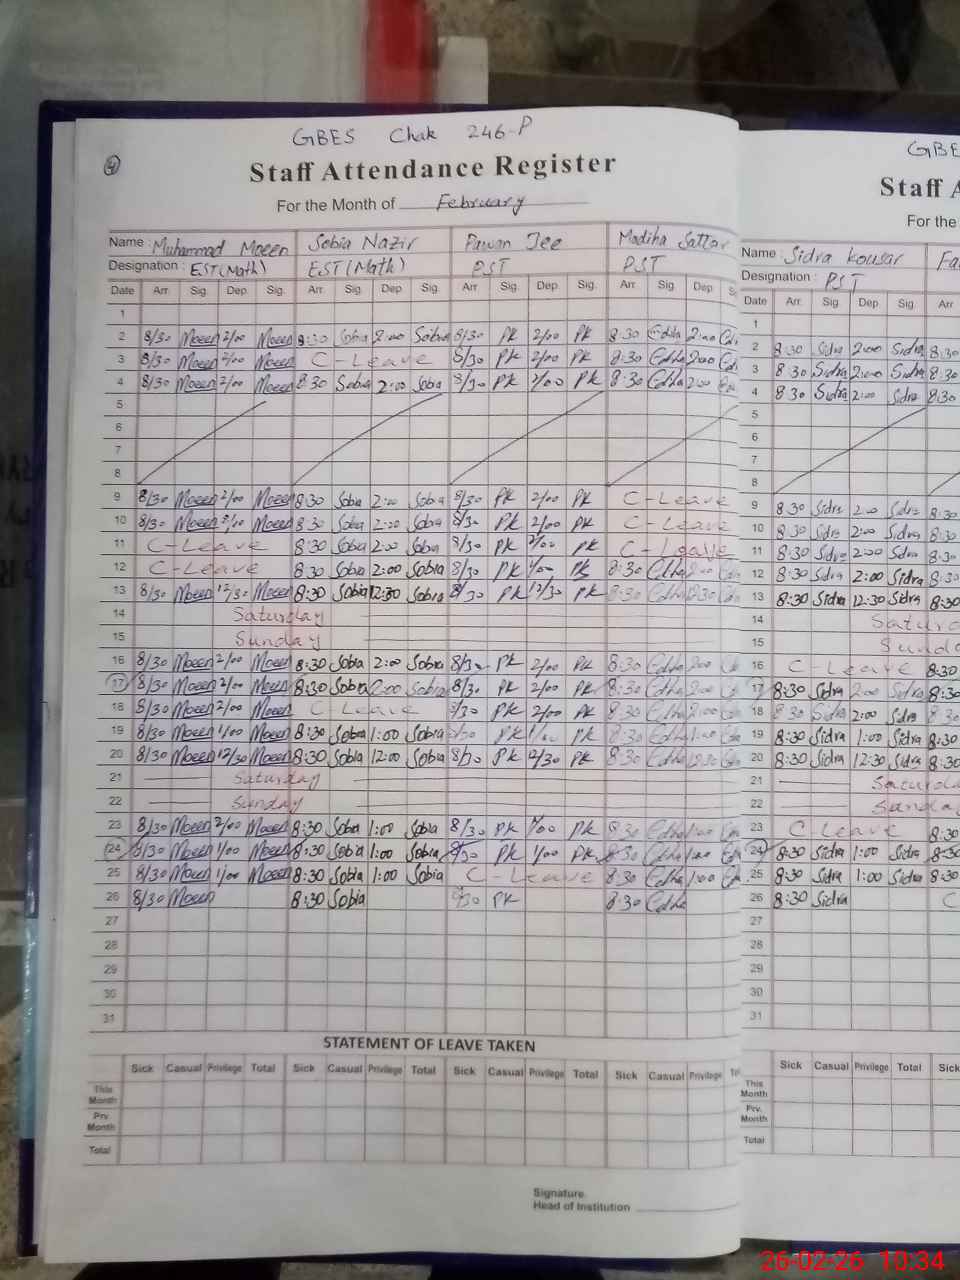 GBES Chak 246-P
4
Staff Attendance Register
For the Month of February
Name : Muhammad Moeen Sobia Nazir Pawan Jee Madiha Sattar
Designation : EST(Math) EST(Math) PST PST
Date Arr. Sig. Dep. Sig. Arr. Sig. Dep. Sig. Arr. Sig. Dep. Sig. Arr. Sig. Dep.
1
2 8/30 Moeen 2/00 Moeen 8:30 Sobia 2:00 Sobia 8/30 PK 2/00 PK 8:30 Edha 2:00
3 8/30 Moeen 2/00 Moeen C-Leave 8/30 PK 2/00 PK 8:30 Edha 2:00
4 8/30 Moeen 2/00 Moeen 8:30 Sobia 2:00 Sobia 8/30 PK 2/00 PK 8:30 Edha 2:00
5
6
7
8
9 8/30 Moeen 2/00 Moeen 8:30 Sobia 2:00 Sobia 8/30 PK 2/00 PK C-Leave
10 8/30 Moeen 2/00 Moeen 8:30 Sobia 2:00 Sobia 8/30 PK 2/00 PK C-Leave
11 C-Leave 8:30 Sobia 2:00 Sobia 8/30 PK 2/00 PK C-Leave
12 C-Leave 8:30 Sobia 2:00 Sobia 8/30 PK PK 8:30 Edha 2:00
13 8/30 Moeen 12/30 Moeen 8:30 Sobia 12:30 Sobia 8/30 PK 12/30 PK 8:30 Edha 12:30
14 Saturday
15 Sunday
16 8/30 Moeen 2/00 Moeen 8:30 Sobia 2:00 Sobia 8/30 PK 2/00 PK 8:30 Edha 2:00
17 8/30 Moeen 2/00 Moeen 8:30 Sobia 2:00 Sobia 8/30 PK 2/00 PK 8:30 Edha 2:00
18 8/30 Moeen 2/00 Moeen C-Leave 8/30 PK 2/00 PK 8:30 Edha 2:00
19 8/30 Moeen 1/00 Moeen 8:30 Sobia 1:00 Sobia 8/30 PK 1/00 PK 8:30 Edha 1:00
20 8/30 Moeen 12/30 Moeen 8:30 Sobia 12:00 Sobia 8/30 PK 12/30 PK 8:30 Edha 12:30
21 Saturday
22 Sunday
23 8/30 Moeen 2/00 Moeen 8:30 Sobia 1:00 Sobia 8/30 PK 1/00 PK 8:30 Edha 1:00
24 8/30 Moeen 1/00 Moeen 8:30 Sobia 1:00 Sobia 8/30 PK 1/00 PK 8:30 Edha 1:00
25 8/30 Moeen 1/00 Moeen 8:30 Sobia 1:00 Sobia C-Leave 8:30 Edha 1:00
26 8/30 Moeen 8:30 Sobia 8/30 PK 8:30 Edha
27
28
29
30
31
STATEMENT OF LEAVE TAKEN
Sick Casual Privilege Total Sick Casual Privilege Total Sick Casual Privilege Total Sick Casual Privilege
This Month
Prv. Month
Total
Signature.
Head of Institution
GBE
Staff A
For the
Name : Sidra Kousar Fa
Designation : PST
Date Arr. Sig. Dep. Sig. Arr
1
2 8:30 Sidra 2:00 Sidra 8:30
3 8:30 Sidra 2:00 Sidra 8:30
4 8:30 Sidra 2:00 Sidra 8:30
5
6
7
8
9 8:30 Sidra 2:00 Sidra 8:30
10 8:30 Sidra 2:00 Sidra 8:30
11 8:30 Sidra 2:00 Sidra 8:30
12 8:30 Sidra 2:00 Sidra 8:30
13 8:30 Sidra 12:30 Sidra 8:30
14 Saturd
15 Sunda
16 C-Leave 8:30
17 8:30 Sidra 2:00 Sidra 8:30
18 8:30 Sidra 2:00 Sidra 8:30
19 8:30 Sidra 1:00 Sidra 8:30
20 8:30 Sidra 12:30 Sidra 8:30
21 Saturda
22 Sunda
23 C-Leave 8:30
24 8:30 Sidra 1:00 Sidra 8:30
25 8:30 Sidra 1:00 Sidra 8:30
26 8:30 Sidra C
27
28
29
30
31
Sick Casual Privilege Total Sick
This Month
Prv. Month
Total
26-02-26 10:34